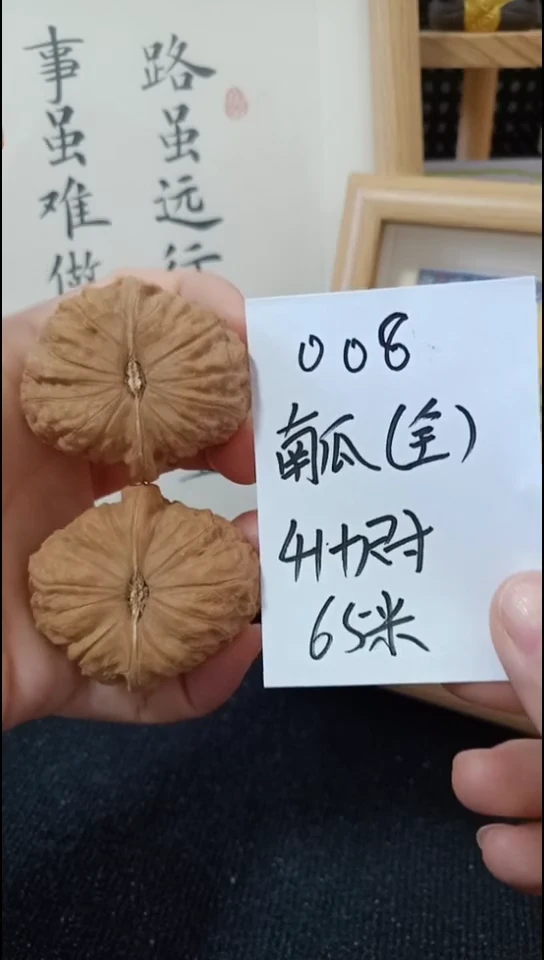 路虽远行
事虽难做
008
南瓜(全)
41+尺寸
65米